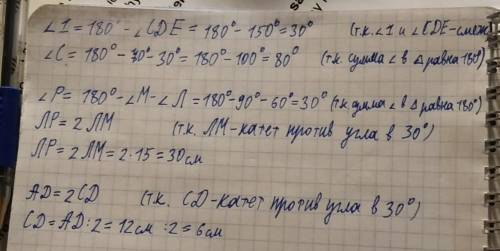 ∠1 = 180° - ∠CDE = 180° - 150° = 30° (т.к. ∠1 и ∠CDE - смеж
∠C = 180° - 70° - 30° = 180° - 100° = 80° (т.к. сумма ∠ в △ равна 180°)
∠P = 180° - ∠M - ∠Л = 180° - 90° - 60° = 30° (т.к. сумма ∠ в △ равна 180°)
ЛP = 2 ЛM (т.к. ЛM - катет против угла в 30°)
ЛP = 2 ЛM = 2·15 = 30 см
AD = 2CD (т.к. CD - катет против угла в 30°)
CD = AD : 2 = 12 см : 2 = 6 см